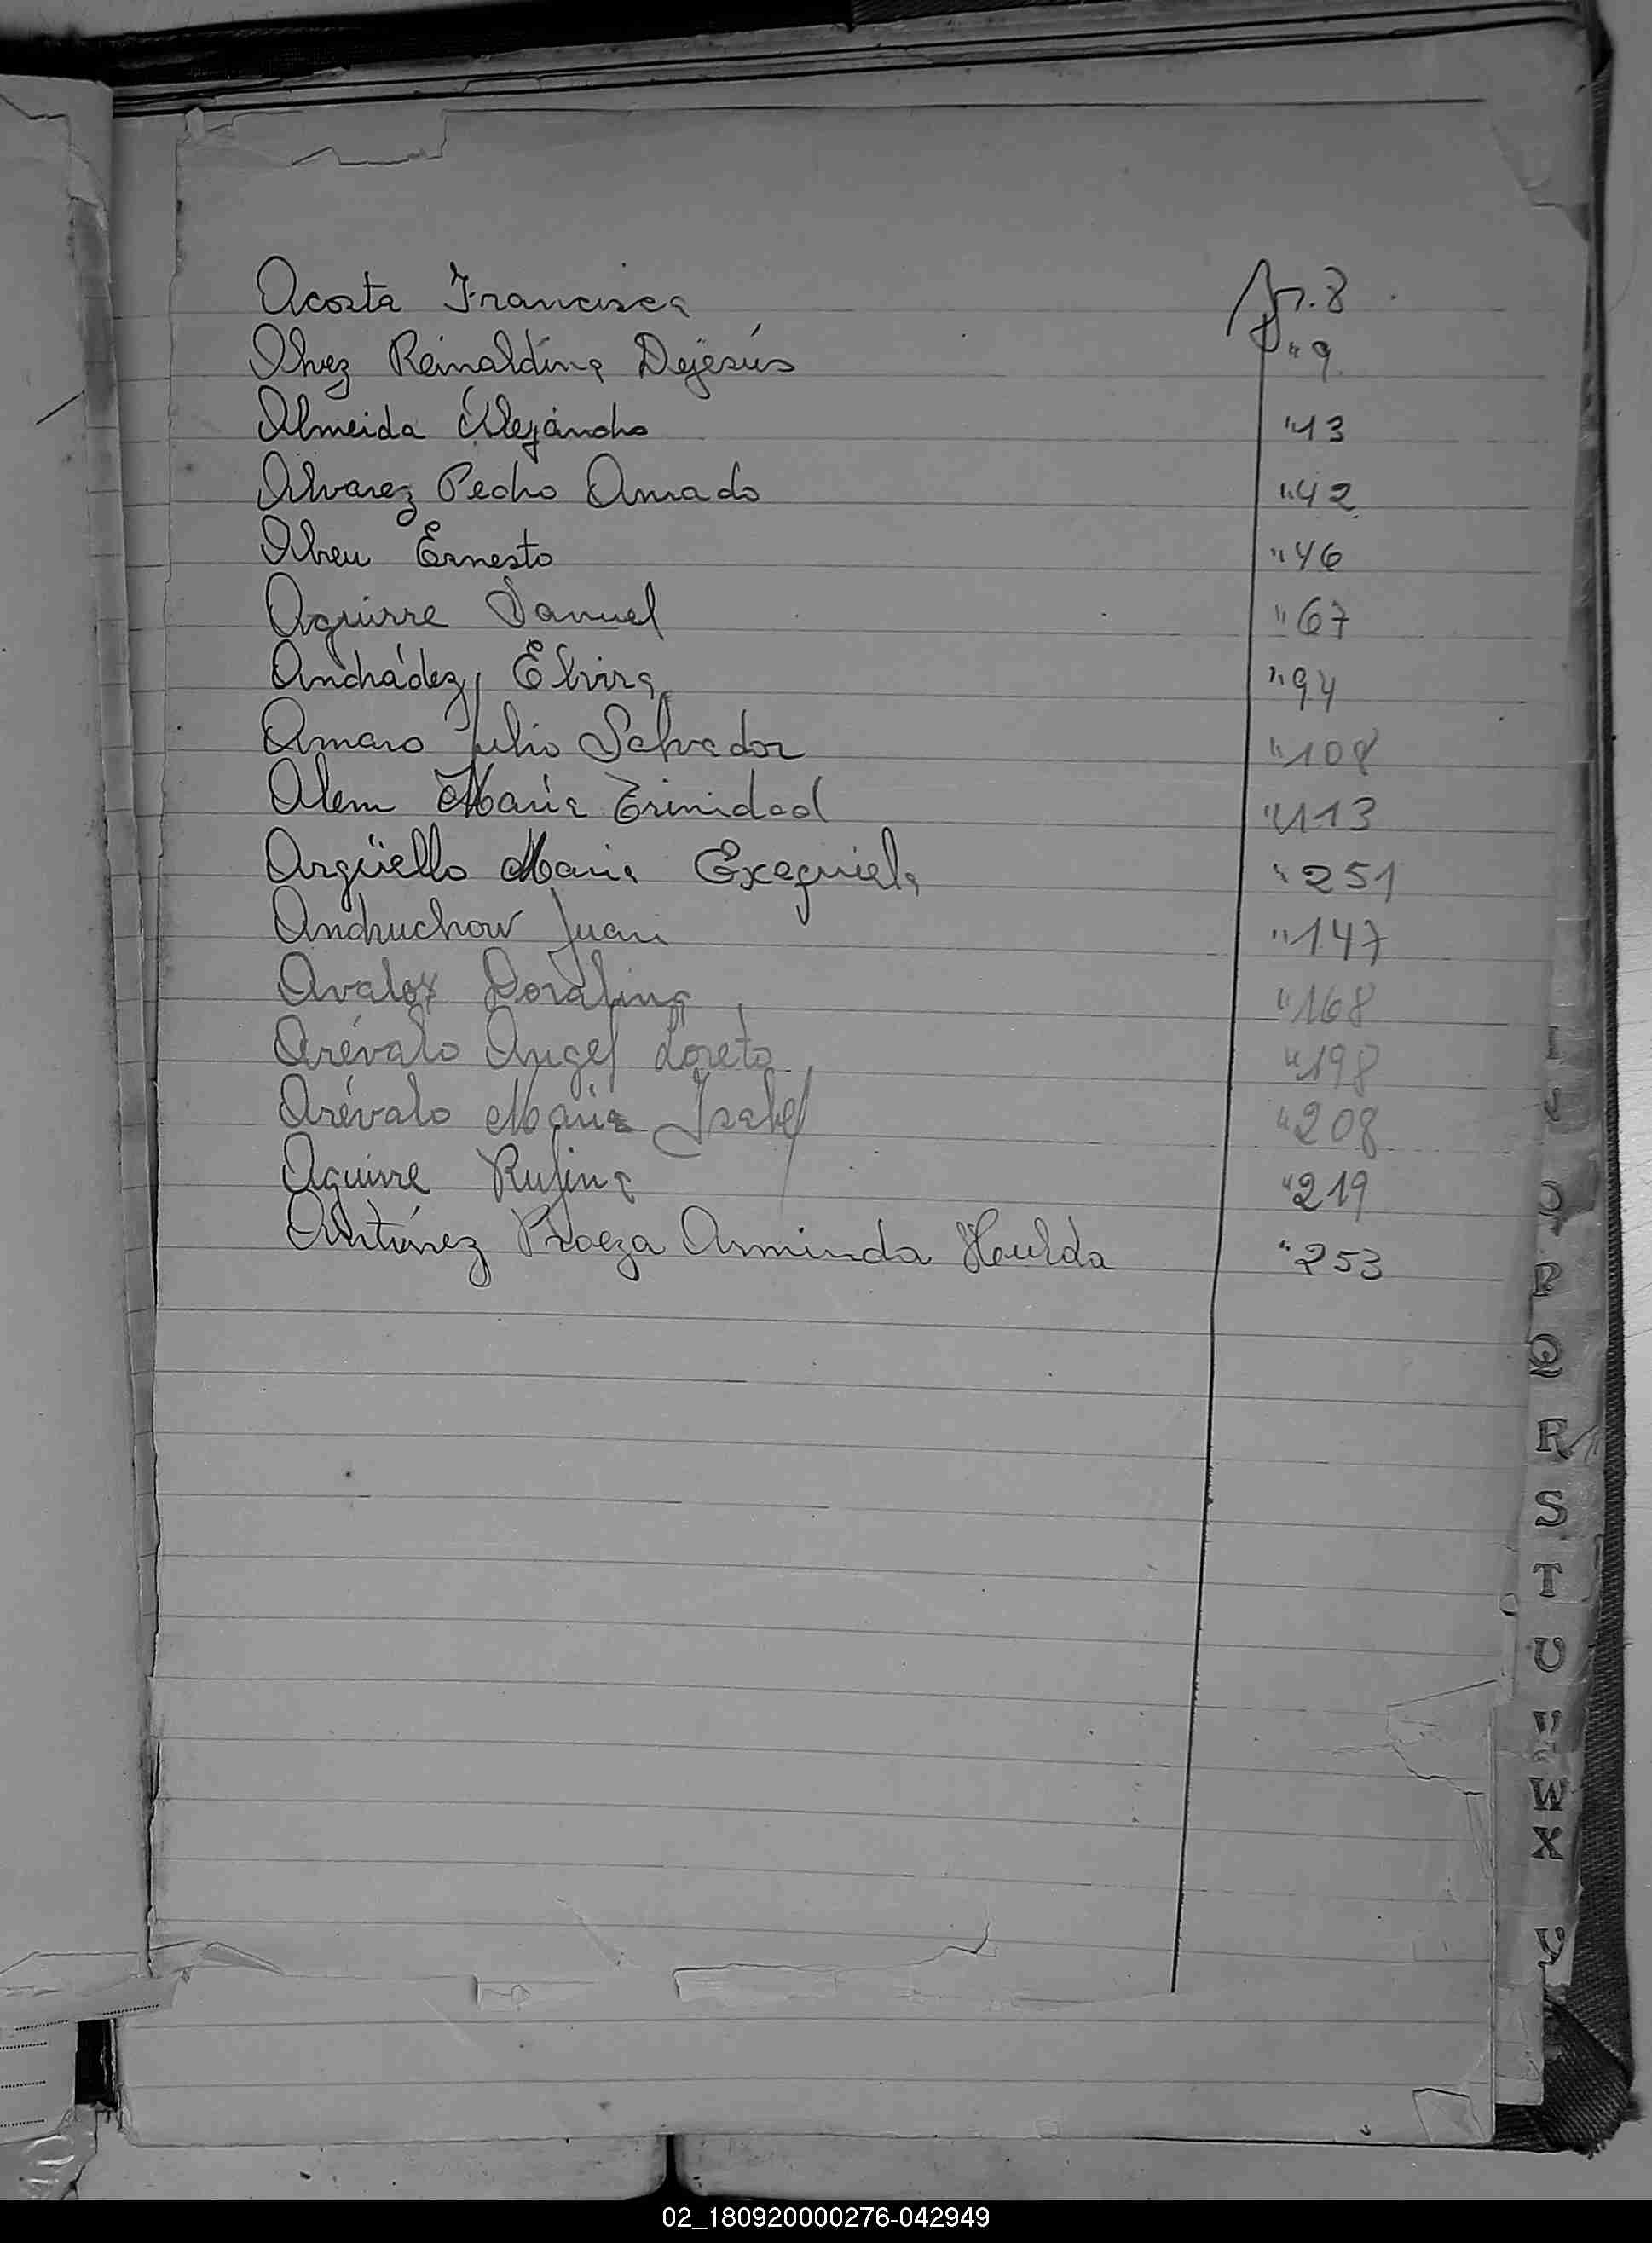 Acosta Francisca fs. 8
Alvez Reinaldina Dejesús " 9
Almeida Alejandro " 13
Alvarez Pedro Amado " 42
Abreu Ernesto " 46
Aguirre Samuel " 67
Andrádez, Elvira " 94
Amaro Julio Salvador " 108
Alem María Trinidad " 113
Argüello Maria Exequiela " 251
Andruchow Juan " 147
Avalos Doralina " 168
Arévalo Angel Loreto " 198
Arévalo María Isabel " 208
Aguirre Rufina " 219
Antúnez Arminda Haulda " 253
P
Q
R
S
T
U
V
W
X
Y
02_180920000276-042949